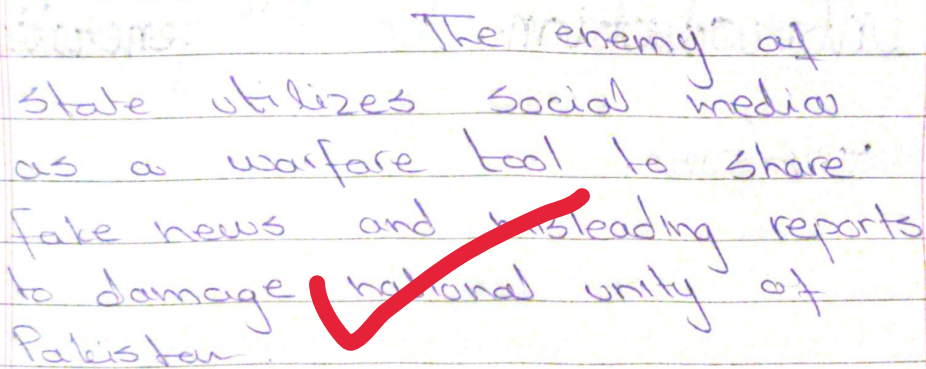 The enemy of
state utilizes social media
as a warfare tool to share
fake news and misleading reports
to damage national unity of
Pakistan.